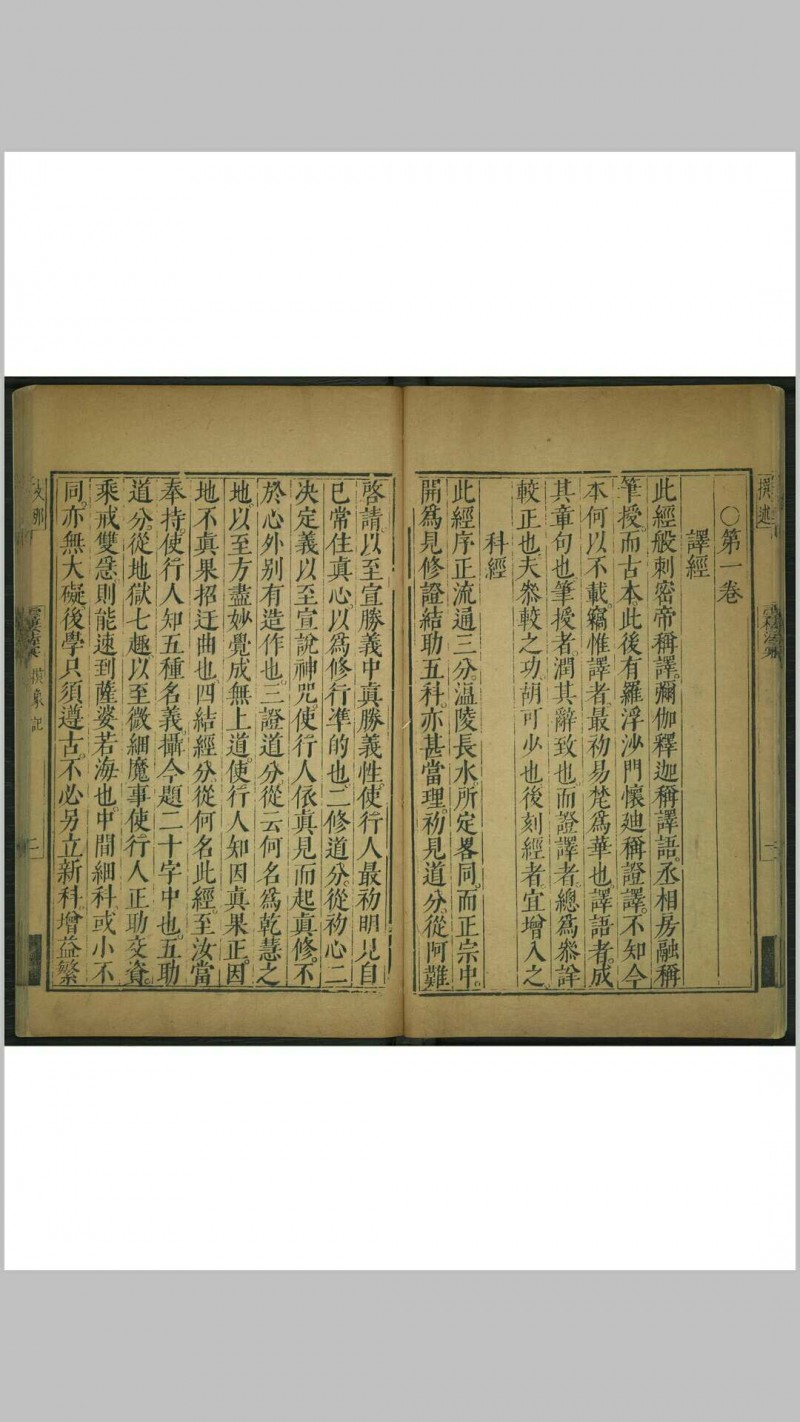 ○第一卷
譯經
此經般剌密帝稱譯。彌伽釋迦稱譯語。丞相房融稱
筆授。而古本此後有羅浮沙門懷廸稱證譯。不知今
本何以不載。竊惟譯者。最初易梵為華也。譯語者。成
其章句也。筆授者。潤其辭致也。而證譯者。總為叅詳
較正也。夫叅較之功。胡可少也。後刻經者。宜增入之。
科經
此經序正流通三分。溫陵長水。所定畧同。而正宗中。
開為見修證結助五科。亦甚當理。初見道分。從阿難
啓請。以至宣勝義中真勝義性。使行人最初明見自
已常住真心。以為修行準的也。二修道分。從初心二
决定義。以至宣說神咒。使行人依真見而起真修。不
於心外別有造作也。三證道分。從云何名為乾慧之
地。以至方盡妙覺成無上道。使行人知因真果正。因
地不真。果招迂曲也。四結經分。從何名此經。至汝當
奉持。使行人知五種名義。攝今題二十字中也。五助
道分。從地獄七趣。以至微細魔事。使行人正助交資。
乘戒雙急。則能速到薩婆若海也。中間細科。或小不
同。亦無大礙。後學只須遵古。不必另立新科。增益繁
撰述
摸象記
三